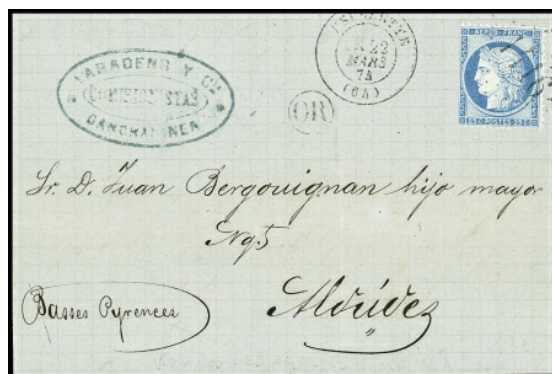 LABADENS Y Cia
COMISIONISTAS
DANCHARINEA
22
MARS
74
(64)
OR
REPUB. FRANC.
25 C. POSTES 25 C.
Sr. D. Juan Bergouignan hijo mayor
Ngt
Aldúdez
Basses Pyrenees